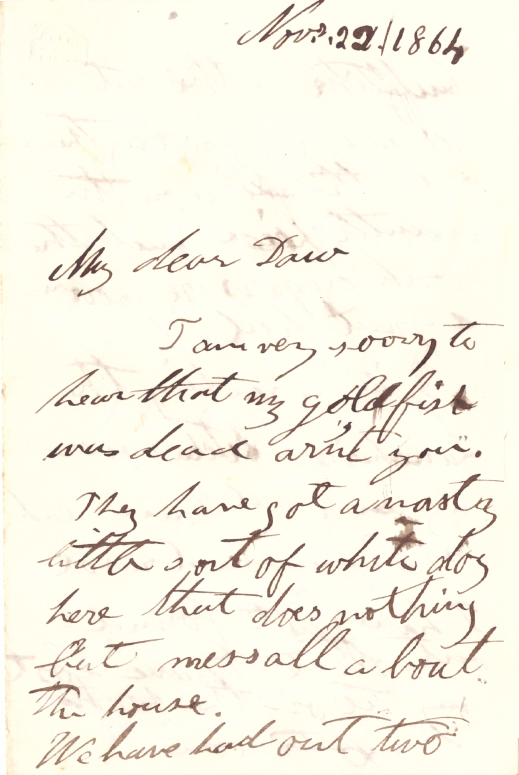 Novr. 22/1864
My dear Daw
I am very sorry to
hear that my goldfish
was dead arn't you.
They have got a nasty
little sort of white dog
here that does nothing
but mess all about
the house.
We have had out two